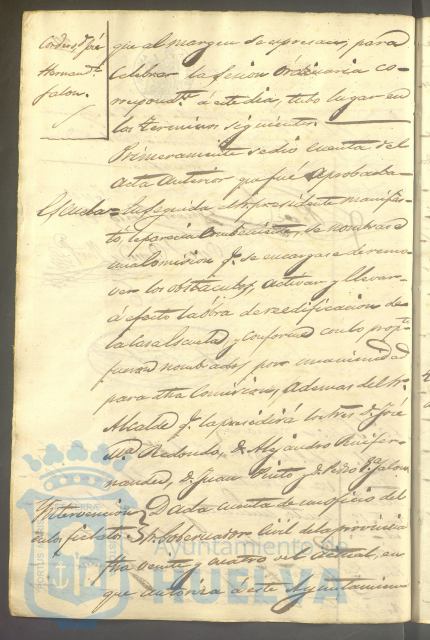 Cordero, d. José
Hernand.z
Jalon.
que al margen se expresan, para
celebrar la sesion ordinaria co-
rrespond.te á este dia, tubo lugar en
los terminos siguientes.
Primeramente se dió cuenta del
acta anterior que fué aprobada.
Escuela = En seguida el Sr. presidente manifes-
tó, le parecia combeniente, se nombrase
una Comision q.e se encargase de remo-
ver los obstaculos, activar y llevar
á efecto la obra de reedificacion de
la casa Escuela, y conforme con lo prop.to
fueron nombrados por unanimidad
para dha Comision, ademas del Sr.
Alcalde q.e la presidirá los Sres. d. José
M.a Redondo, d. Alejandro Ruiz Fer-
nandez, d. Juan Prieto y d. Pedro G.a Jalon
Intervencion Dada cuenta de un oficio del
de los fielatos Sr. Gobernador Civil de la provincia
fha veinte y cuatro del actual, en
que autoriza á este Ayuntamien-
Ayuntamiento de
HUELVA